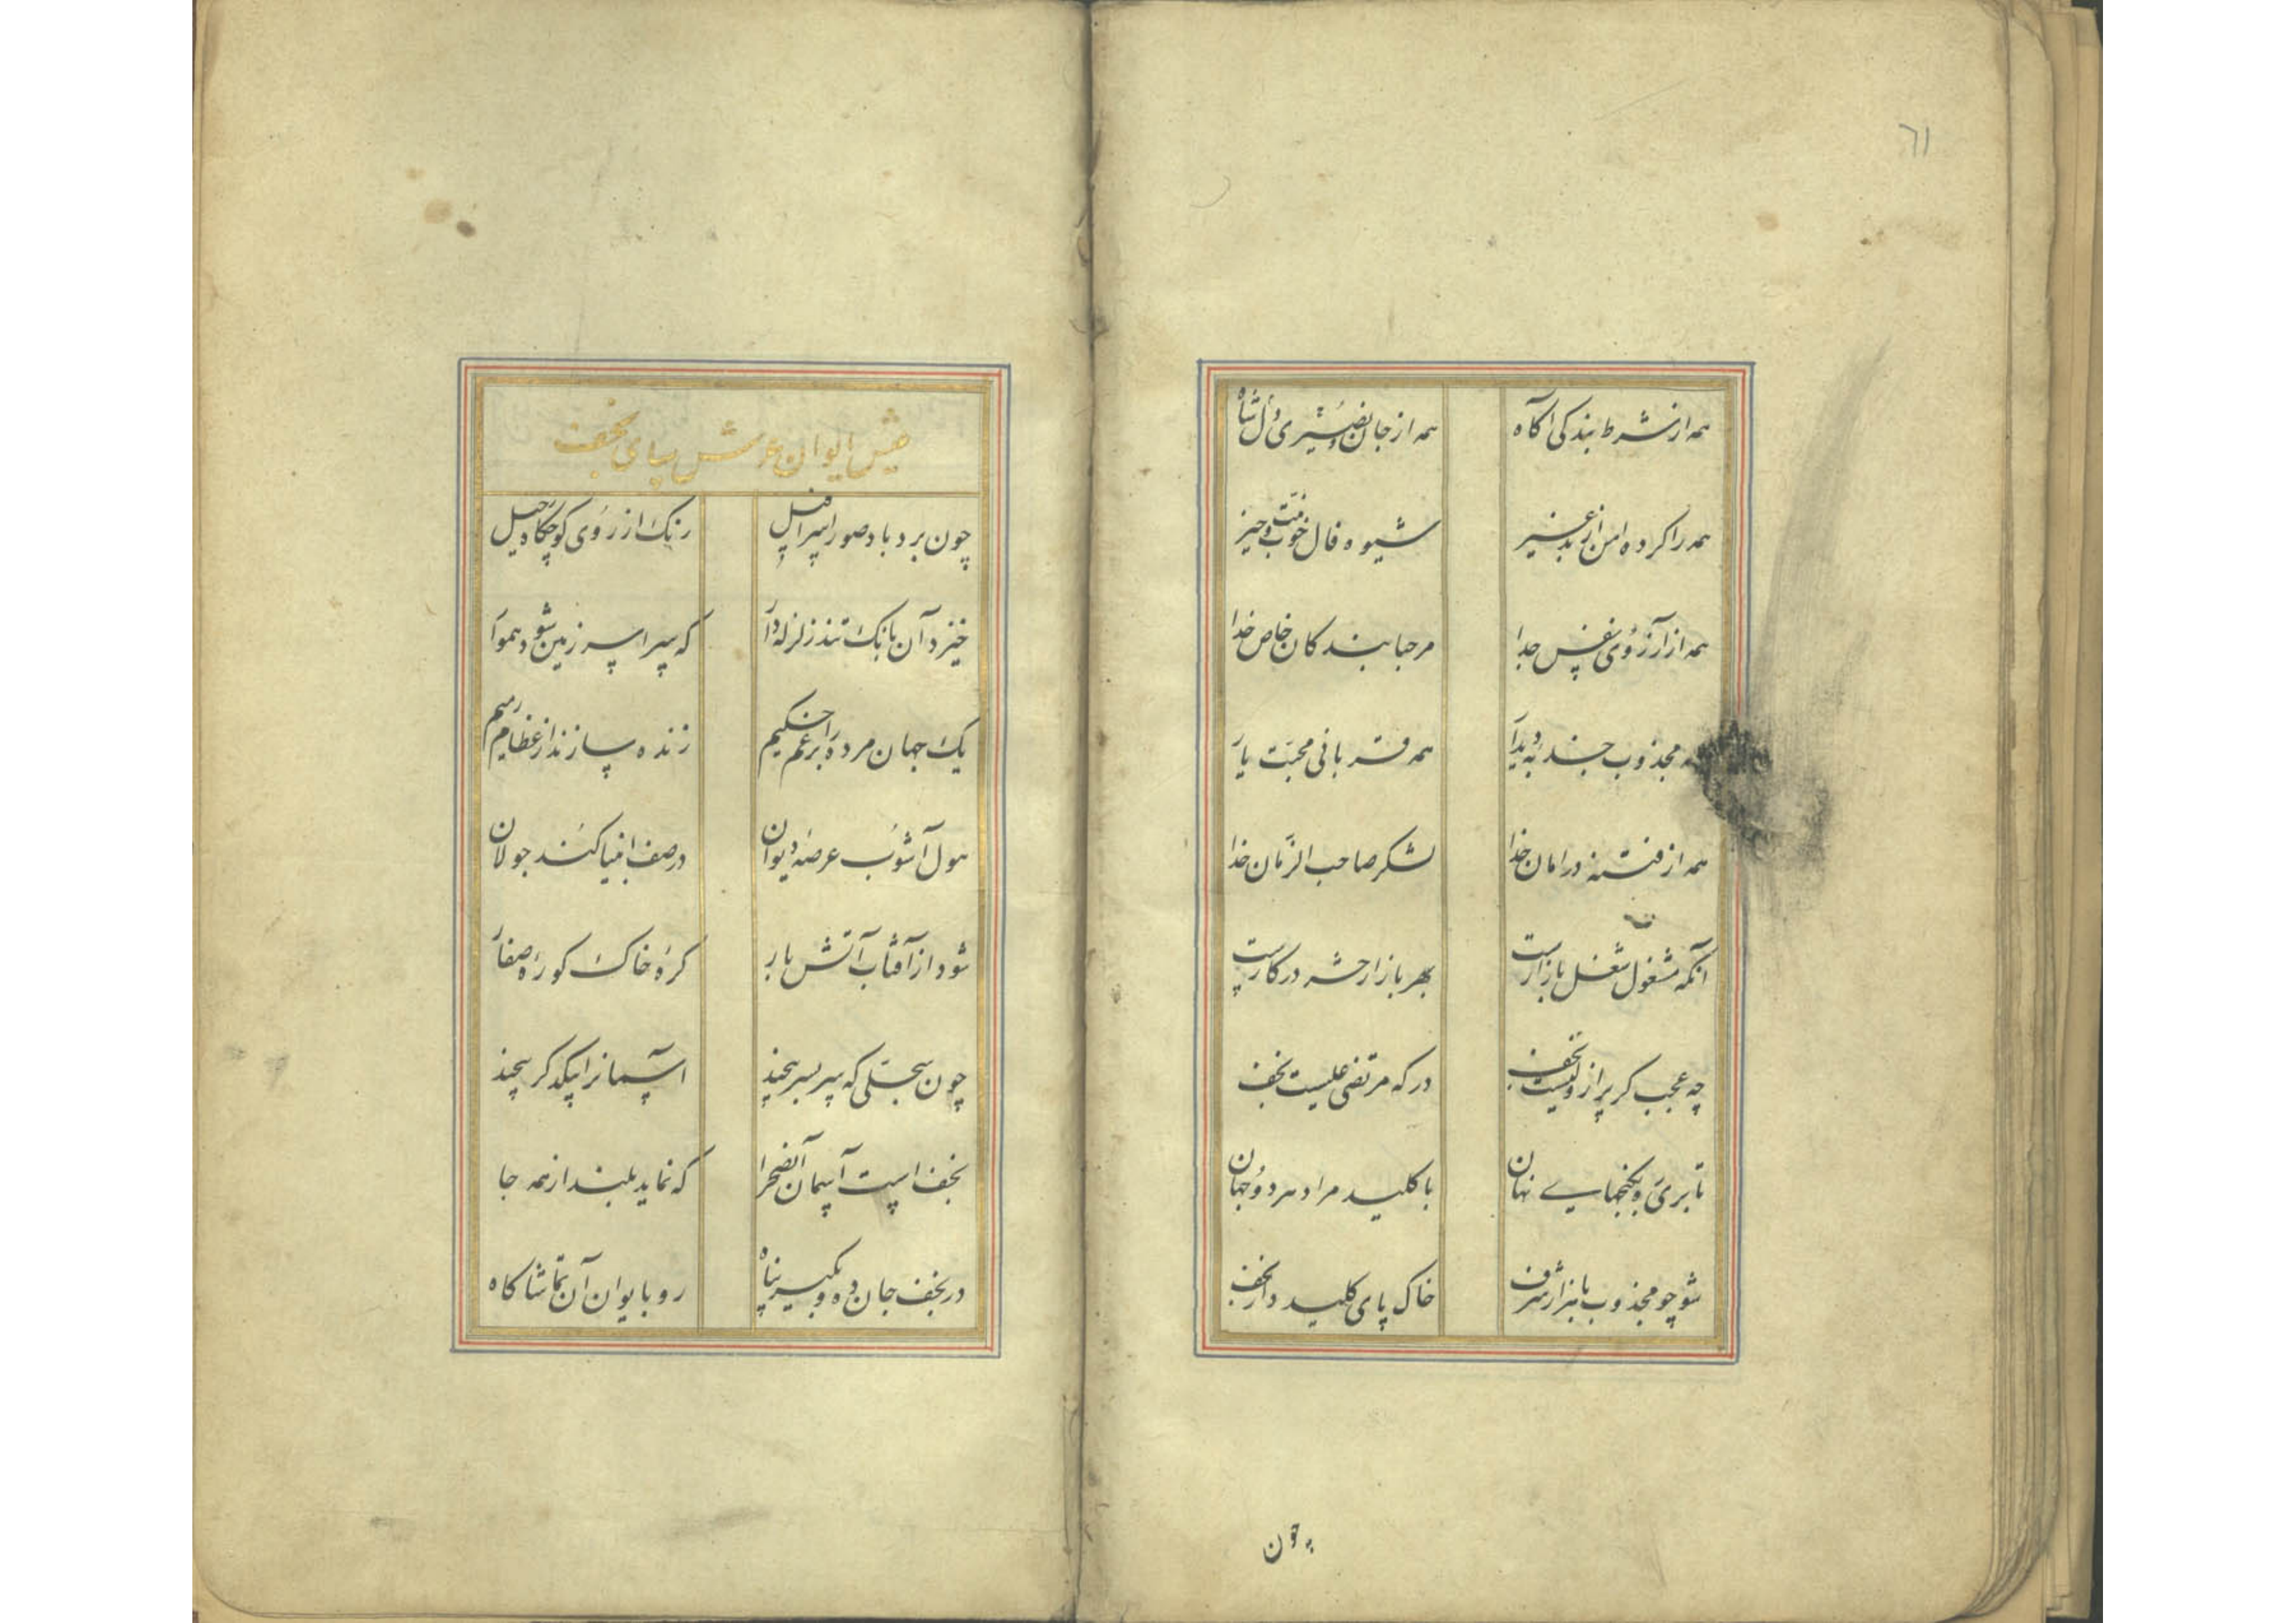 ٦١
همه از شرط بندکی آکاه همه از جان نصیری دل شاه
همه را کرده امن از بد غیر شیوه فال خوب و نیت خیر
همه از آرزوی نفس جدا مرحبا بندکان خاص خدا
مجذوب جذبه دیدار همه قربانی محبت یار
همه از فتنه در امان خدا لشکر صاحب الزمان خدا
آنکه مشغول شغل بازارست بهر بازار حشر در کارست
چه عجب کر پر از ولیست نجف درکه مرتضی علیست نجف
تا بری و بکنجهای نهان با کلید مراد هر دو جهان
شو چو مجذوب با هزار شرف خاک پای کلید دار نجف
چون
پیش ایوان عرش سای نجف
چون برد باد صور اسرافیل رنک از روی کوچکاه رحیل
خیزد آن بانک تند زلزله دار که سراسر زمین شود هموار
یک جهان مرده را بزعم حکیم زنده سازند از عظام رمیم
هول آشوب عرصه دیوان در صف انبیا کند جولان
شود از آفتاب آتش بار کره خاک کوره صفار
چون سجلی که سر بسر پیچند آسمانرا بیکدکر پیچند
نجف است آسمان آنصحرا که نماید بلند از همه جا
در نجف جان ده و بکیر پناه رو بایوان آن تماشاکاه